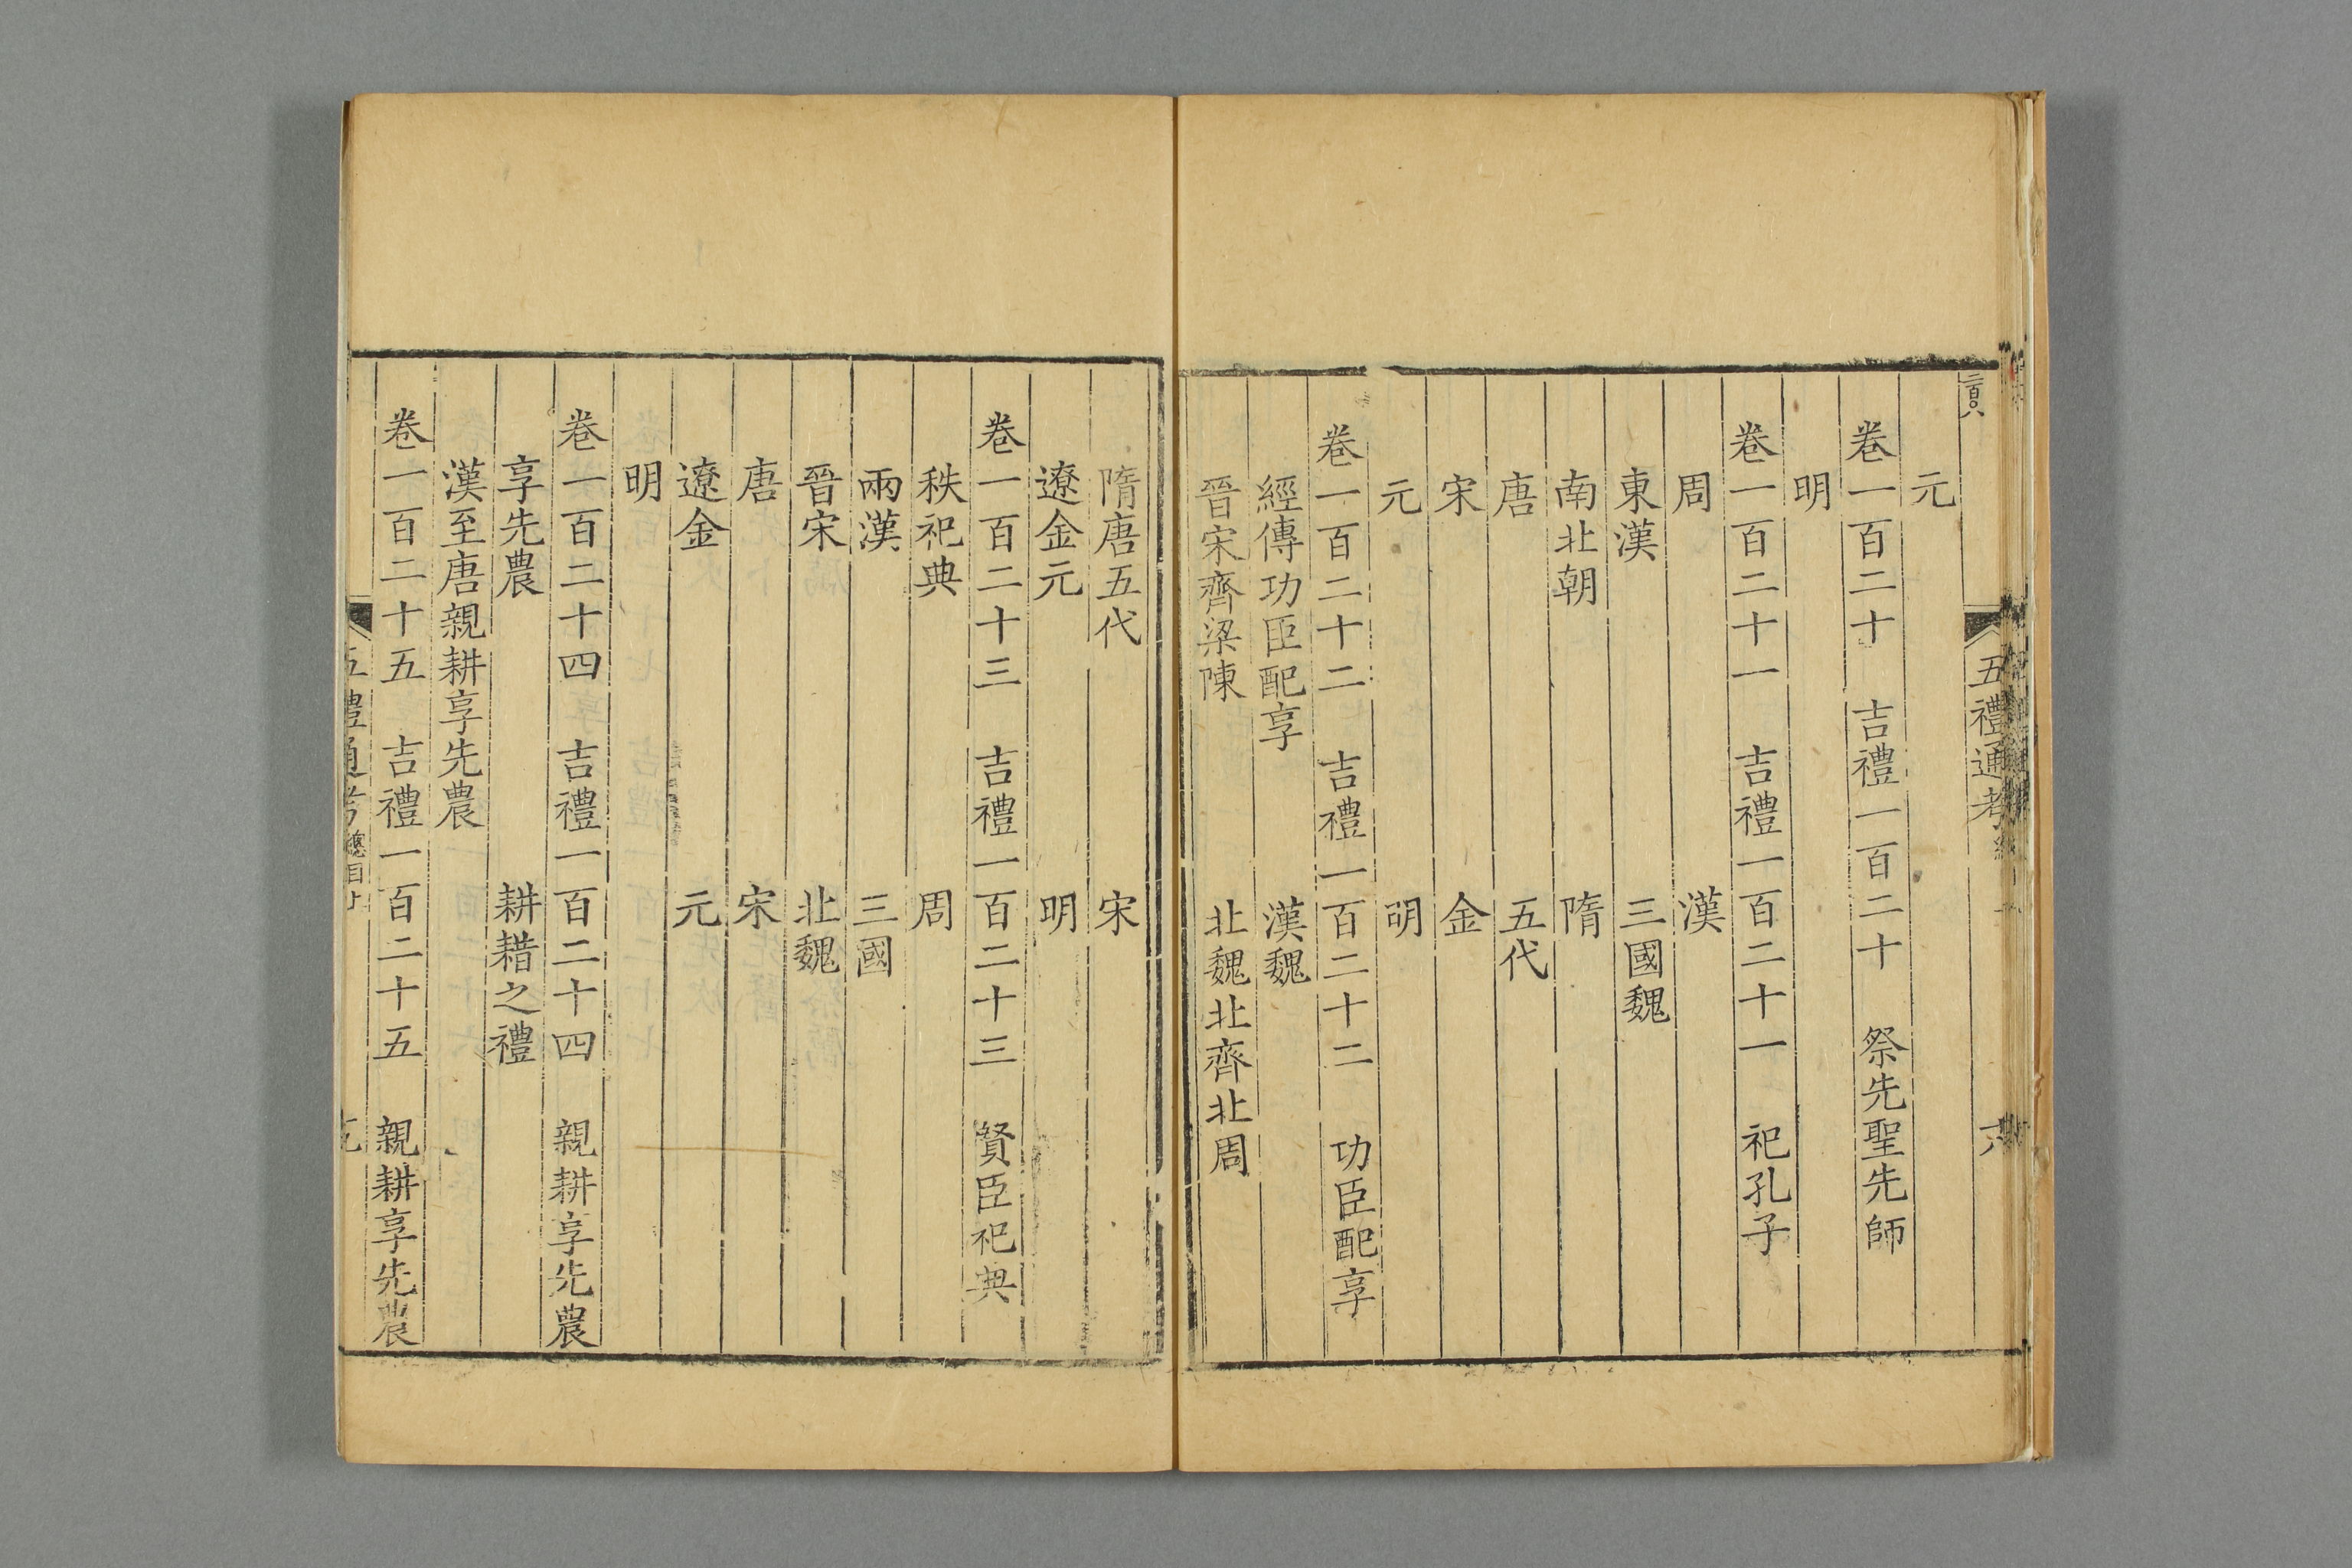 五禮通考
元
卷一百二十　吉禮一百二十　祭先聖先師
明
卷一百二十一　吉禮一百二十一　祀孔子
周　漢
東漢　三國魏
南北朝　隋
唐　五代
宋　金
元　明
卷一百二十二　吉禮一百二十二　功臣配享
經傳功臣配享　漢魏
晉宋齊梁陳　北魏北齊北周
隋唐五代　宋
遼金元　明
卷一百二十三　吉禮一百二十三　賢臣祀典
秩祀典　周
兩漢　三國
晉宋　北魏
唐　宋
遼金　元
明
卷一百二十四　吉禮一百二十四　親耕享先農
享先農　耕耤之禮
漢至唐親耕享先農
卷一百二十五　吉禮一百二十五　親耕享先農
五禮通考總目